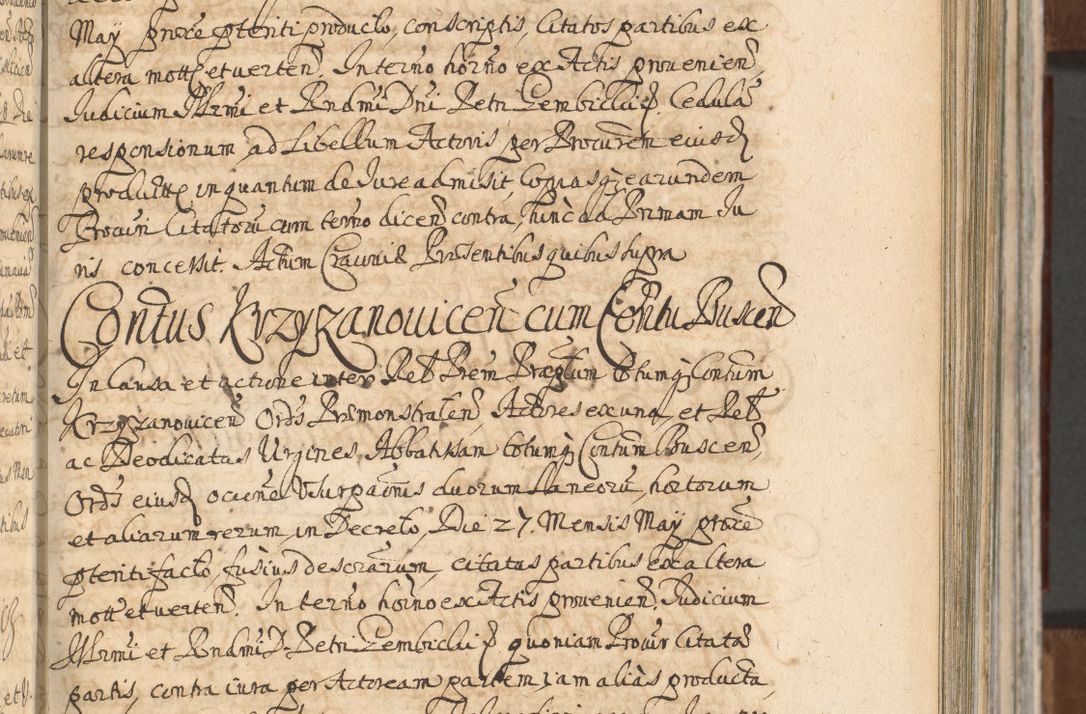 May prõce pteriti producto, conscriptis, Citatos partibus ex
altera mott et verteñ. In terno horño ex Actis provenieñ,
Iudicium Illrmi et Rndmi Dni Petri Gembicki Cedulas
responsionum, ad Libellum Actoris per Procurem eiusd
product in quantum de Iure admisit, Copias q3 earundem
Procuri Citatoru cum terno dicen contra, hinc ad Primam Iu
ris concessit. Actum Cracoviæ Præsentibus quibus supra
Contus Krzyzanoviceñ cum Contu Busceñ
In Causa et actione inter Rel Prem Præptum totumq3 Contum
Krzyzanoviceñ Ordis Præmonstrateñ, Actores ex una, et Rel
ac Deodicatas Virgines, Abbatissam totumq3 Contum Busceñ,
Ordis eiusd occne Usurpaonis duorum laneoru, hortorum
et aliarum rerum, in Decreto, Die 27. Mensis May prõce
pteriti facto, fusius descrarum, citatas partibus ex altera
mott et verteñ. In terno horño ex Actis provenieñ, Iudicium
Illrmi et Rndmi D. Petri Gembicki quoniam Procur Citatæ
partis, contra iura per Actoream partem, iam aliàs producta,